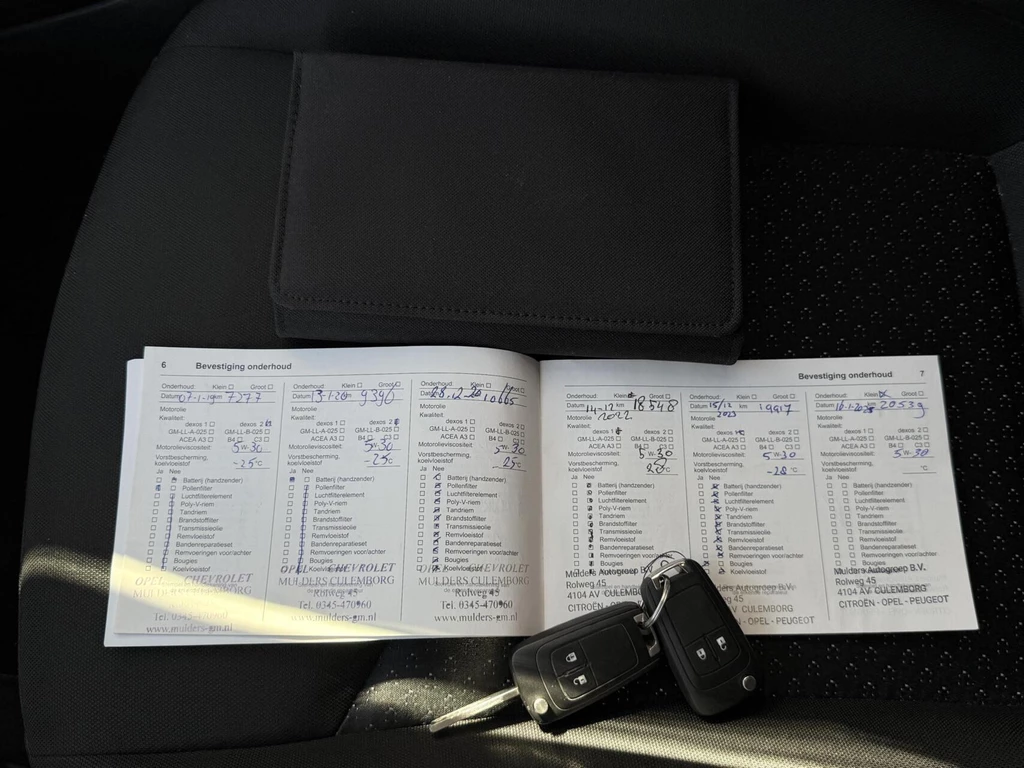 6 Bevestiging onderhoud
Onderhoud: Klein Groot
Datum 07-1-19 km 7277
Motorolie
Kwaliteit:
dexos 1 dexos 2
GM-LL-A-025 GM-LL-B-025
ACEA A3 B4 C3
Motorolieviscositeit: 5W-30
Vorstbescherming,
koelvloeistof -25 °C
Ja Nee
Batterij (handzender)
Pollenfilter
Luchtfilterelement
Poly-V-riem
Tandriem
Brandstoffilter
Transmissieolie
Remvloeistof
Bandenreparatieset
Remvoeringen voor/achter
Bougies
Koelvloeistof
OPEL CHEVROLET
MULDERS CULEMBORG
Tel. 0345-470960
www.mulders-gm.nl
Onderhoud: Klein Groot
Datum 13-1-20 km 9390
Motorolie
Kwaliteit:
dexos 1 dexos 2
GM-LL-A-025 GM-LL-B-025
ACEA A3 B4 C3
Motorolieviscositeit: 5W-30
Vorstbescherming,
koelvloeistof -25 °C
Ja Nee
Batterij (handzender)
Pollenfilter
Luchtfilterelement
Poly-V-riem
Tandriem
Brandstoffilter
Transmissieolie
Remvloeistof
Bandenreparatieset
Remvoeringen voor/achter
Bougies
Koelvloeistof
OPEL CHEVROLET
MULDERS CULEMBORG
Rolweg 45
Tel. 0345-470960
www.mulders-gm.nl
Onderhoud: Klein Groot
Datum 10665
Motorolie
Kwaliteit:
dexos 1 dexos 2
GM-LL-A-025 GM-LL-B-025
ACEA A3 B4 C3
Motorolieviscositeit: 5W-30
Vorstbescherming,
koelvloeistof 25 °C
Ja Nee
Batterij (handzender)
Pollenfilter
Luchtfilterelement
Poly-V-riem
Tandriem
Brandstoffilter
Transmissieolie
Remvloeistof
Bandenreparatieset
Remvoeringen voor/achter
Bougies
Koelvloeistof
CHEVROLET
MULDERS CULEMBORG
Rolweg 45
Tel. 0345-470960
www.mulders-gm.nl
Bevestiging onderhoud 7
Onderhoud: Klein Groot
Datum 14-12 km 18548
2022
Motorolie
Kwaliteit:
dexos 1 dexos 2
GM-LL-A-025 GM-LL-B-025
ACEA A3 B4 C3
Motorolieviscositeit: 5W-30
Vorstbescherming,
koelvloeistof 28 °C
Ja Nee
Batterij (handzender)
Pollenfilter
Luchtfilterelement
Poly-V-riem
Tandriem
Brandstoffilter
Transmissieolie
Remvloeistof
Bandenreparatieset
Remvoeringen voor/achter
Mulders Autogroep B.V.
Rolweg 45
4104 AV CULEMBORG
CITROËN - OPEL
Onderhoud: Klein Groot
Datum 15/12 km 19917
2023
Motorolie
Kwaliteit:
dexos 1 dexos 2
GM-LL-A-025 GM-LL-B-025
ACEA A3 B4 C3
Motorolieviscositeit: 5W-30
Vorstbescherming,
koelvloeistof -28 °C
Ja Nee
Batterij (handzender)
Pollenfilter
Luchtfilterelement
Poly-V-riem
Tandriem
Brandstoffilter
Transmissieolie
Remvloeistof
Bandenreparatieset
Remvoeringen voor/achter
Bougies
Koelvloeistof
Autogroep B.V.
AV CULEMBORG
OPEL - PEUGEOT
Onderhoud: Klein Groot
Datum 16-1-2025 km 20539
Motorolie
Kwaliteit:
dexos 1 dexos 2
GM-LL-A-025 GM-LL-B-025
ACEA A3 B4 C3
Motorolieviscositeit: 5W-30
Vorstbescherming,
koelvloeistof °C
Ja Nee
Batterij (handzender)
Pollenfilter
Luchtfilterelement
Poly-V-riem
Tandriem
Brandstoffilter
Transmissieolie
Remvloeistof
Bandenreparatieset
Remvoeringen voor/achter
Bougies
Mulders Autogroep B.V.
Rolweg 45
4104 AV CULEMBORG
CITROËN - OPEL - PEUGEOT